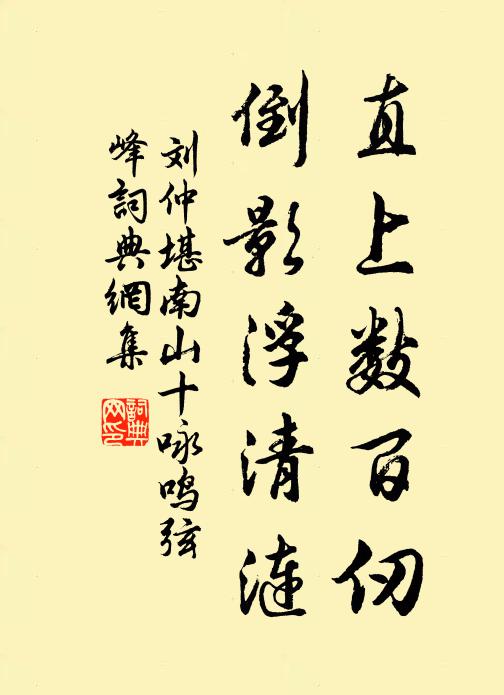 直上数百仞
倒影浮清漣
刘仲堪南山十咏鸣弦
峰詞典網集
詞典
网印